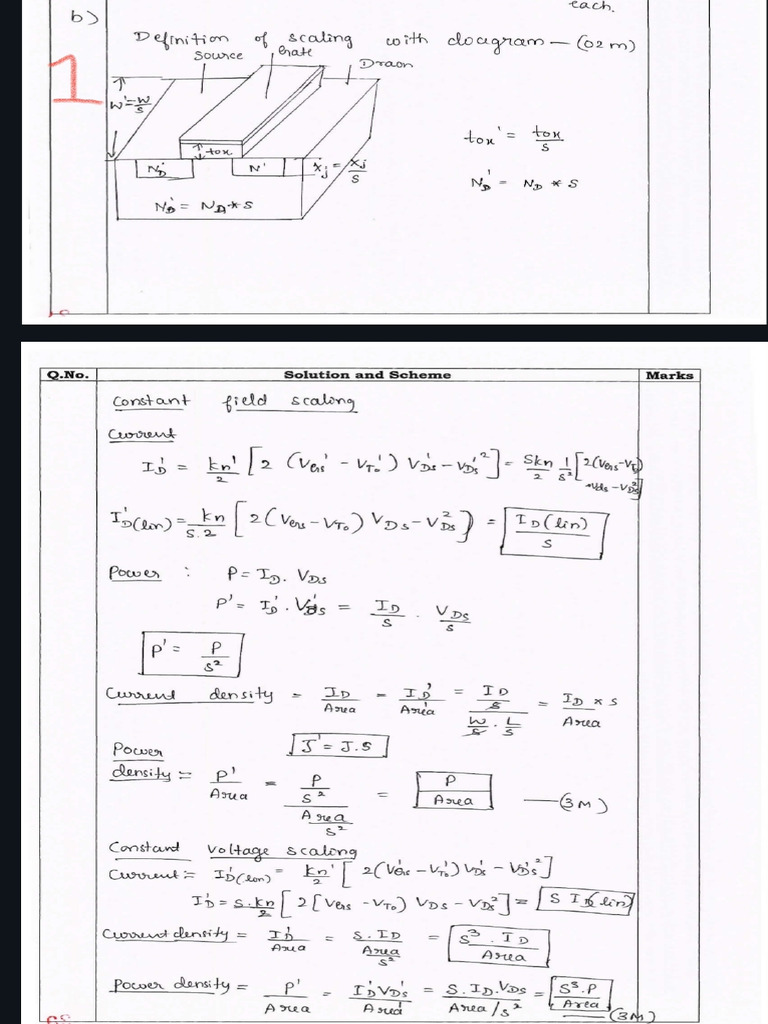 each.
b)
Definition of scaling with diagram — (02 m)
1
Source Gate Drain
W' = W/S
tox
tox' = tox/S
ND' N' xj' = xj/S
ND' = ND * S
ND' = NA * S
Q.No. Solution and Scheme Marks
Constant field scaling
Current
ID' = kn'/2 [2 (VGS' - VTo') VDS' - VDS'^2] = Skn/2 1/S^2 [2(VGS-VT)
*VDS - VDS^2]
ID'(lin) = kn/S.2 [2(VGS - VTo) VDS - VDS^2] = ID(lin)/S
Power : P = ID. VDS
P' = ID' . VDS' = ID/S . VDS/S
P' = P/S^2
Current density = ID/Area = ID'/Area' = (ID/S)/(W/S . L/S) = ID * S/Area
J' = J.S
Power
density := P'/Area = (P/S^2)/(Area/S^2) = P/Area —(3M)
Constant voltage scaling
Current := ID'(lin) = kn'/2 [ 2(VGS' - VTo') VDS' - VDS'^2]
ID' = S.kn/2 [ 2[VGS - VTo) VDS - VDS^2] = S ID(lin)
Current density = ID'/Area = S.ID/(Area/S^2) = S^3 . ID/Area
Power density = P'/Area = ID'VDS'/Area' = S.ID.VDS/(Area/S^2) = S^3.P/Area
—(3M)